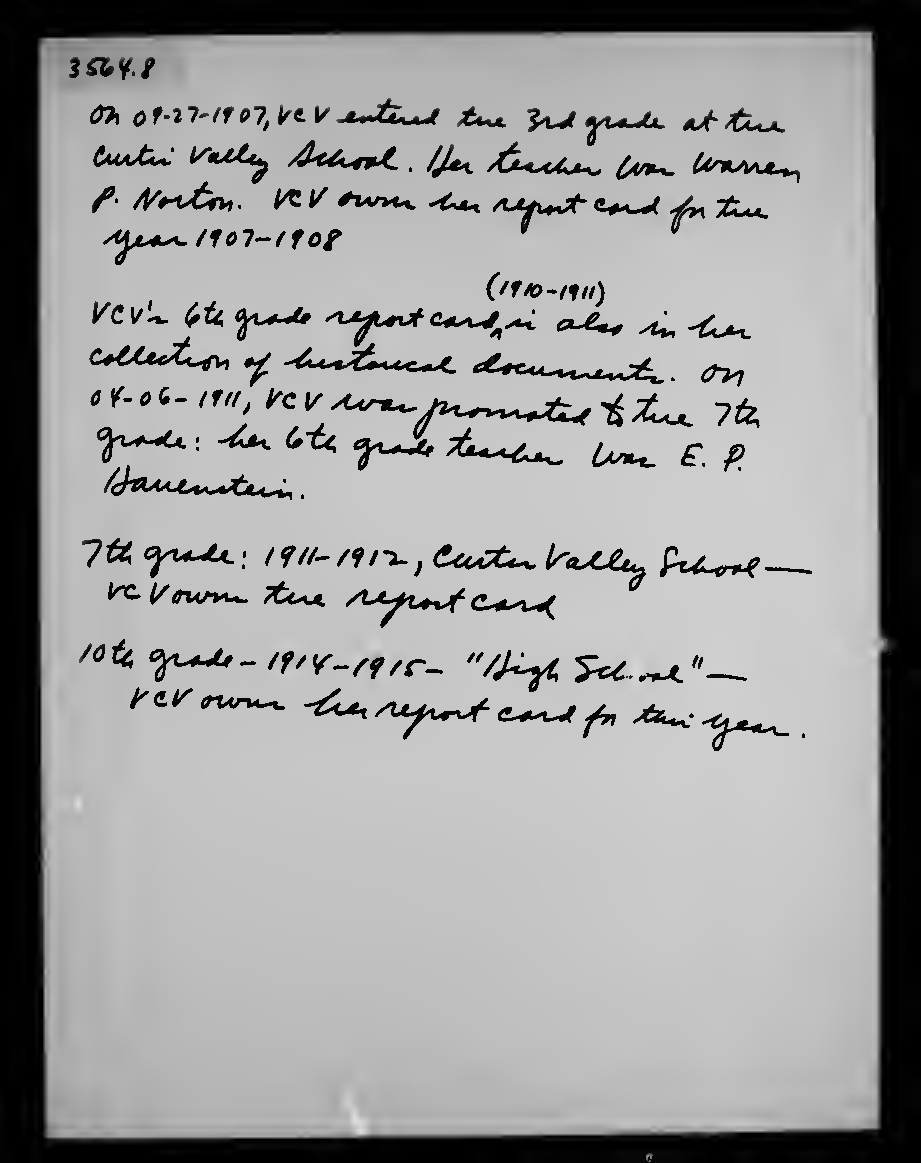 3564.8
On 09-27-1907, VCV entered the 3rd grade at the
Curtis Valley School. Her teacher was Warren
P. Norton. VCV owns her report card for the
year 1907-1908
(1910-1911)
VCV's 6th grade report card ^ is also in her
collection of historical documents. On
04-06-1911, VCV was promoted to the 7th
grade: her 6th grade teacher was E. P.
Hauenstein.
7th grade: 1911-1912, Curtis Valley School—
VCV owns the report card
10th grade - 1914-1915- "High School"—
VCV owns her report card for this year.